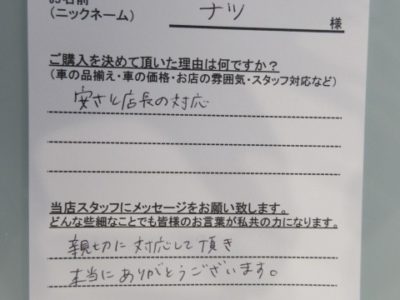 お名前
(ニックネーム)
ナツ
様
ご購入を決めて頂いた理由は何ですか?
(車の品揃え・車の価格・お店の雰囲気・スタッフ対応など)
安さと店長の対応
当店スタッフにメッセージをお願い致します。
どんな些細なことでも皆様のお言葉が私共の力になります。
親切に対応して頂き
本当にありがとうございます。